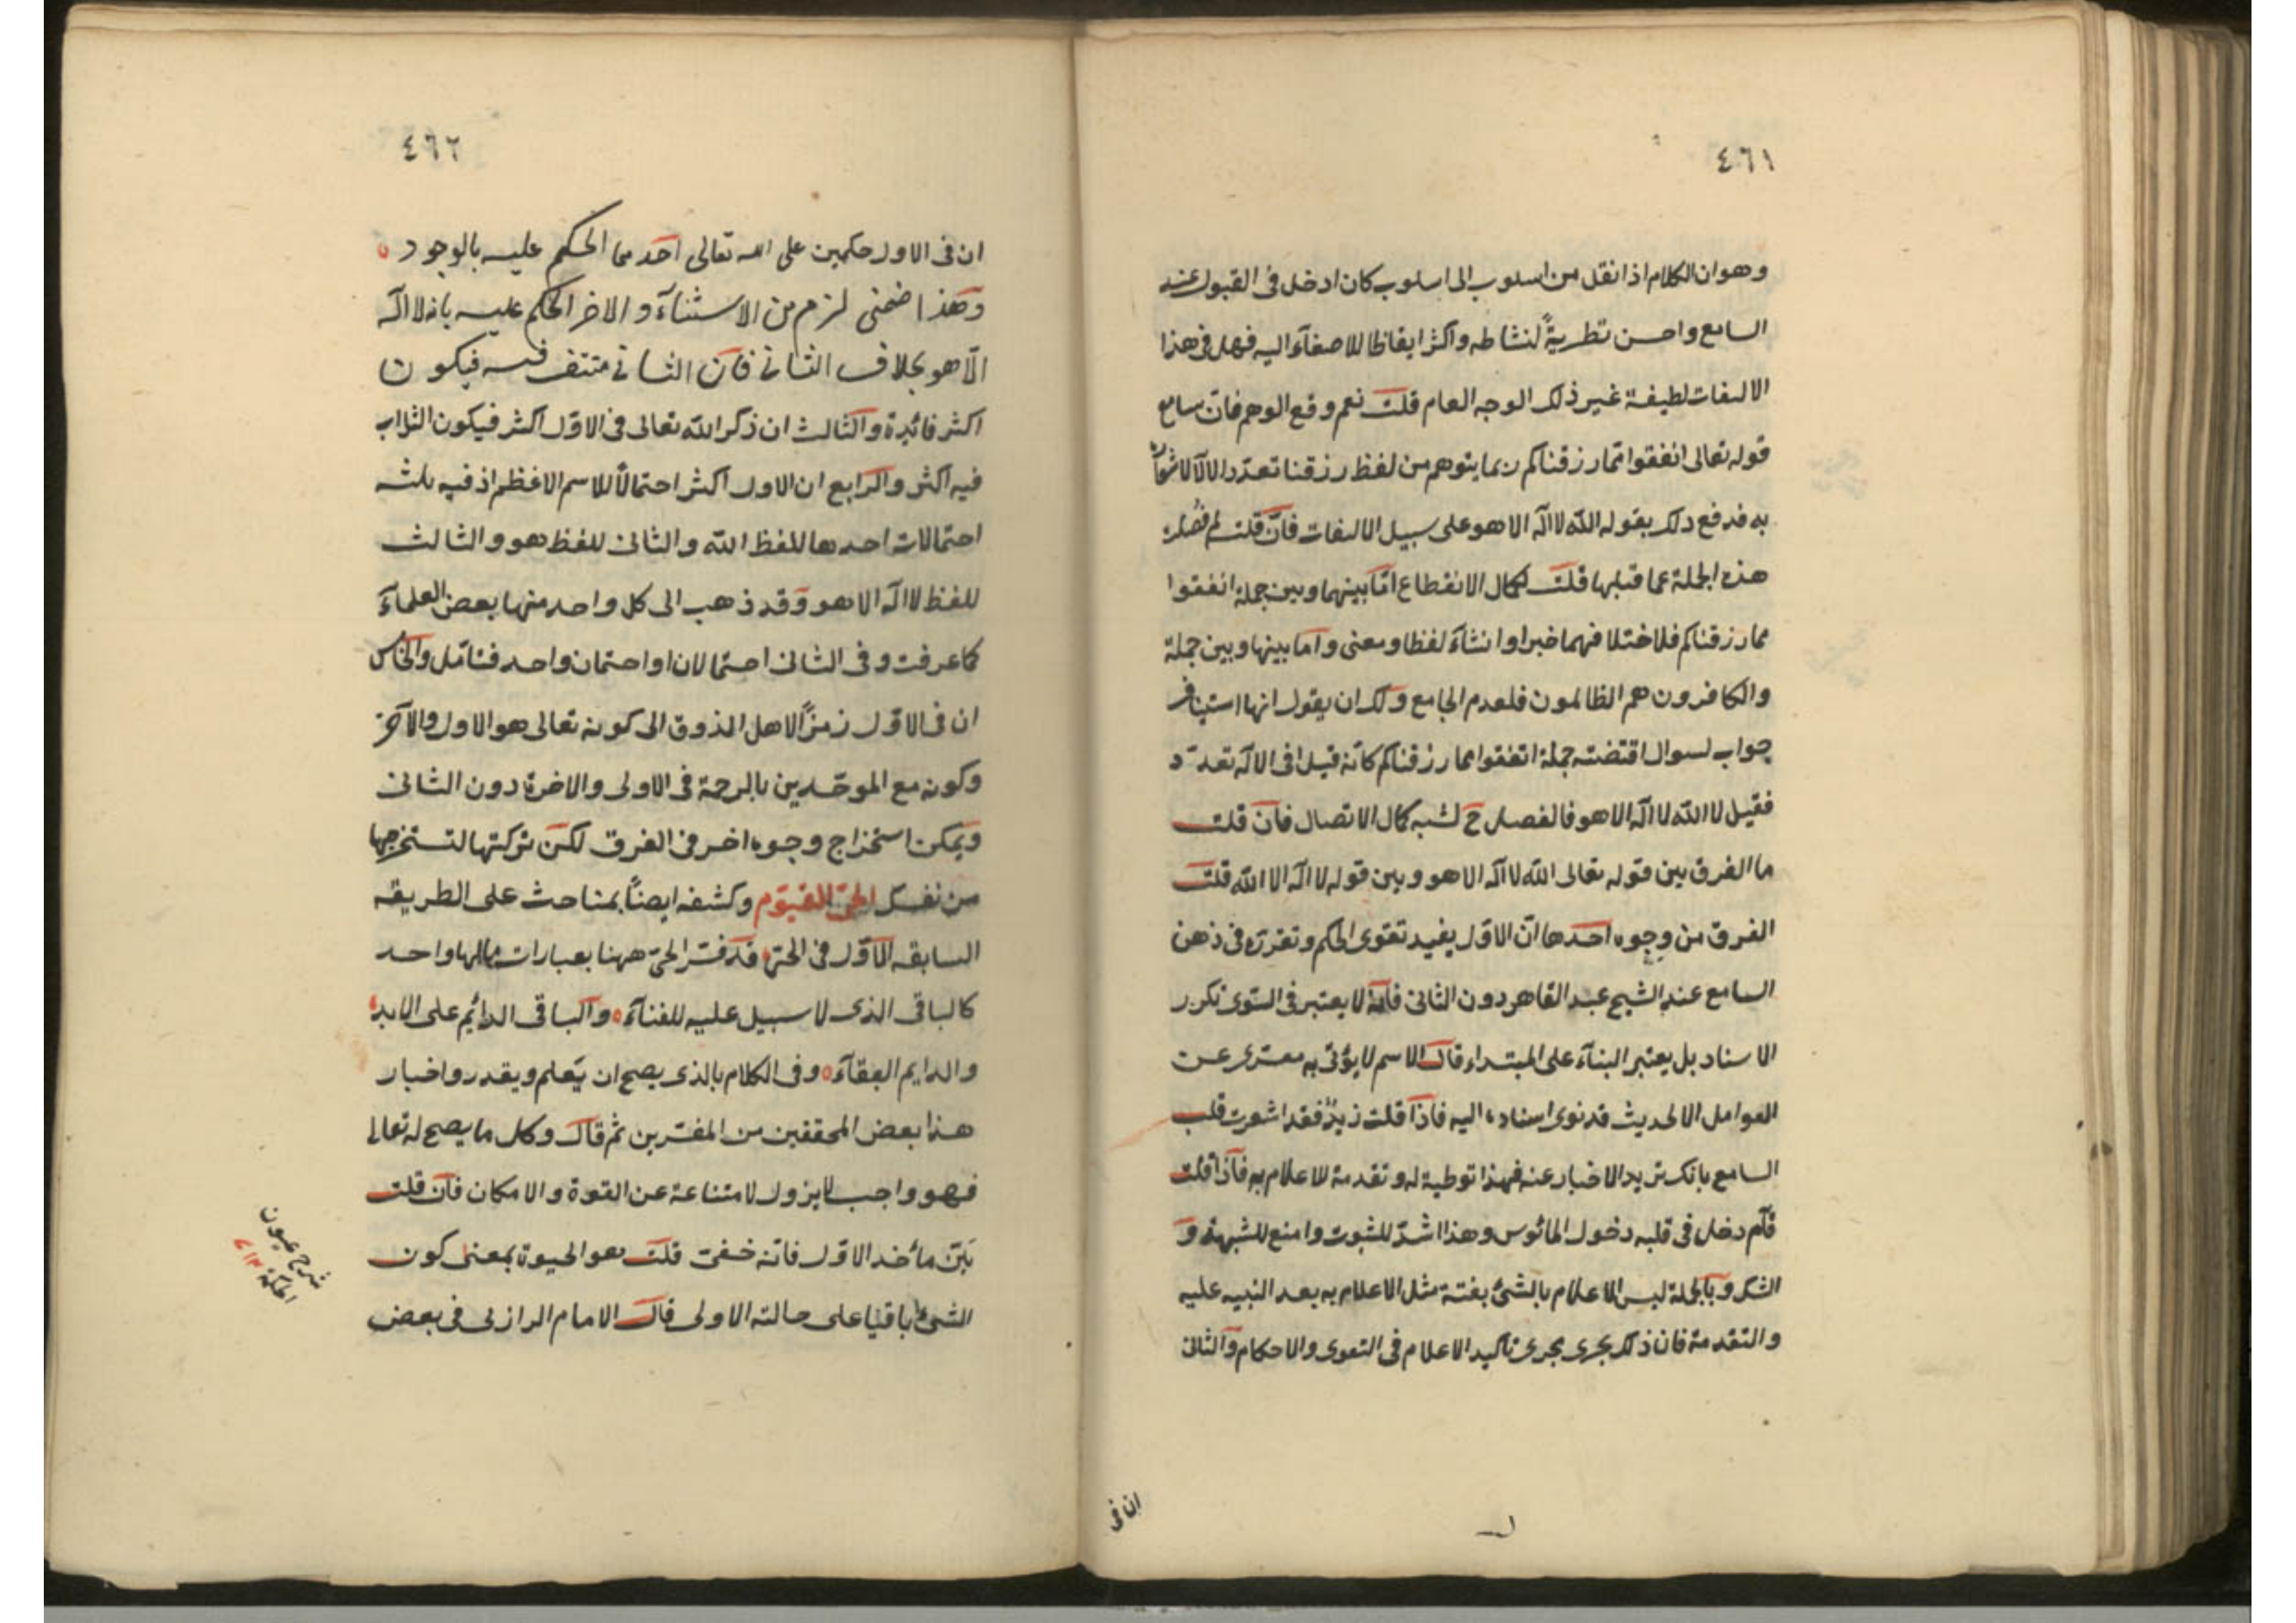 ٤٦١
وهو ان الكلام اذا نقل من اسلوب الى اسلوب كان ادخل فى القبول عند
السامع واحسن تطرية لنشاطه واكثر ايقاظا للاصغآء اليه فهل فى هذا
الالتفات لطيفة غير ذلك الوجه العام قلت نعم وقع الوهم فان سامع
قوله تعالى انفقوا مما رزقناكم ربما يتوهم من لفظ رزقنا تعدد الاله
به فدفع ذلك بقوله الله لا اله الا هو على سبيل الالتفات فان قلت لم فصلت
هذه الجملة عما قبلها قلت لكمال الانقطاع اما بينهما وبين جملة انفقوا
مما رزقناكم فلاختلافهما خبرا وانشآء لفظا ومعنى واما بينها وبين جملة
والكافرون هم الظالمون فلعدم الجامع ولك ان يقول انها استيناف
جواب لسوال اقتضته جملة انفقوا مما رزقناكم كانه قيل افى الاله تعدد
فقيل لا الله لا اله الا هو فالفصل ح لشبه كمال الاتصال فان قلت
ما الفرق بين قوله تعالى الله لا اله الا هو وبين قوله لا اله الا الله قلت
الفرق من وجوه احدها ان الاول يفيد تقوى الحكم وتقرره فى ذهن
السامع عند الشيخ عبد القاهر دون الثانى فانه لا يعتبر فى التقوى تكرر
الاسناد بل يعتبر البنآء على المبتداء قال الاسم لا يؤتى به معترى عن
العوامل الا لحديث قد نوى اسناده اليه فاذا قلت زيد فقد اشعرت قلب
السامع بانك تريد الاخبار عنه فهذا توطية له وتقدمة للاعلام به فاذا قلت
قام دخل فى قلبه دخول المانوس وهذا اشد للثبوت وامنع للشبهة و
الشك وبالجملة ليس الاعلام بالشئ بغتة مثل الاعلام به بعد التنبيه عليه
والتقدمة فان ذلك يجرى مجرى تاكيد الاعلام فى التقوى والاحكام والثانى
ان فى
٤٦٢
ان فى الاول حكمين على الله تعالى احدهما الحكم عليه بالوجود
وهذا ضمنى لزم من الاستثنآء والاخر الحكم عليه بانه لا اله
الا هو بخلاف الثانى فان الثانى منتف فيه فيكون
اكثر فائدة والثالث ان ذكر الله تعالى فى الاول اكثر فيكون الثواب
فيه اكثر والرابع ان الاول اكثر احتمالا للاسم الاعظم اذ فيه ثلثه
احتمالات احدها للفظ الله والثانى للفظ هو والثالث
للفظ لا اله الا هو وقد ذهب الى كل واحد منها بعض العلمآء
كما عرفت وفى الثانى احتمالان او احتمان واحد فتامل والخامس
ان فى الاول رمزا لاهل الذوق الى كونه تعالى هو الاول والآخر
وكونه مع الموحدين بالرحمة فى الاولى والاخرة دون الثانى
ويمكن استخراج وجوه اخر فى الفرق لكن تركتها لتستخرجها
من نفسك الحى القيوم وكشفه ايضا بمباحث على الطريقه
السابقه الاول فى الحى قد فسر الحى ههنا بعبارات مالها واحد
كالباقى الذى لا سبيل عليه للفنآء والباقى الدائم على الابد
والدايم البقآء وفى الكلام بالذى يصح ان يعلم ويقدر واختار
هذا بعض المحققين من المفسرين ثم قال وكل ما يصح له تعالى
فهو واجب لا يزول لامتناعه عن القوة والامكان فان قلت
بين مأخذ الاول فانه خفى قلت هو الحيوة بمعنى كون
الشئ باقيا على حالته الاولى قال الامام الرازى فى بعض
شرح عيون
الحكمة